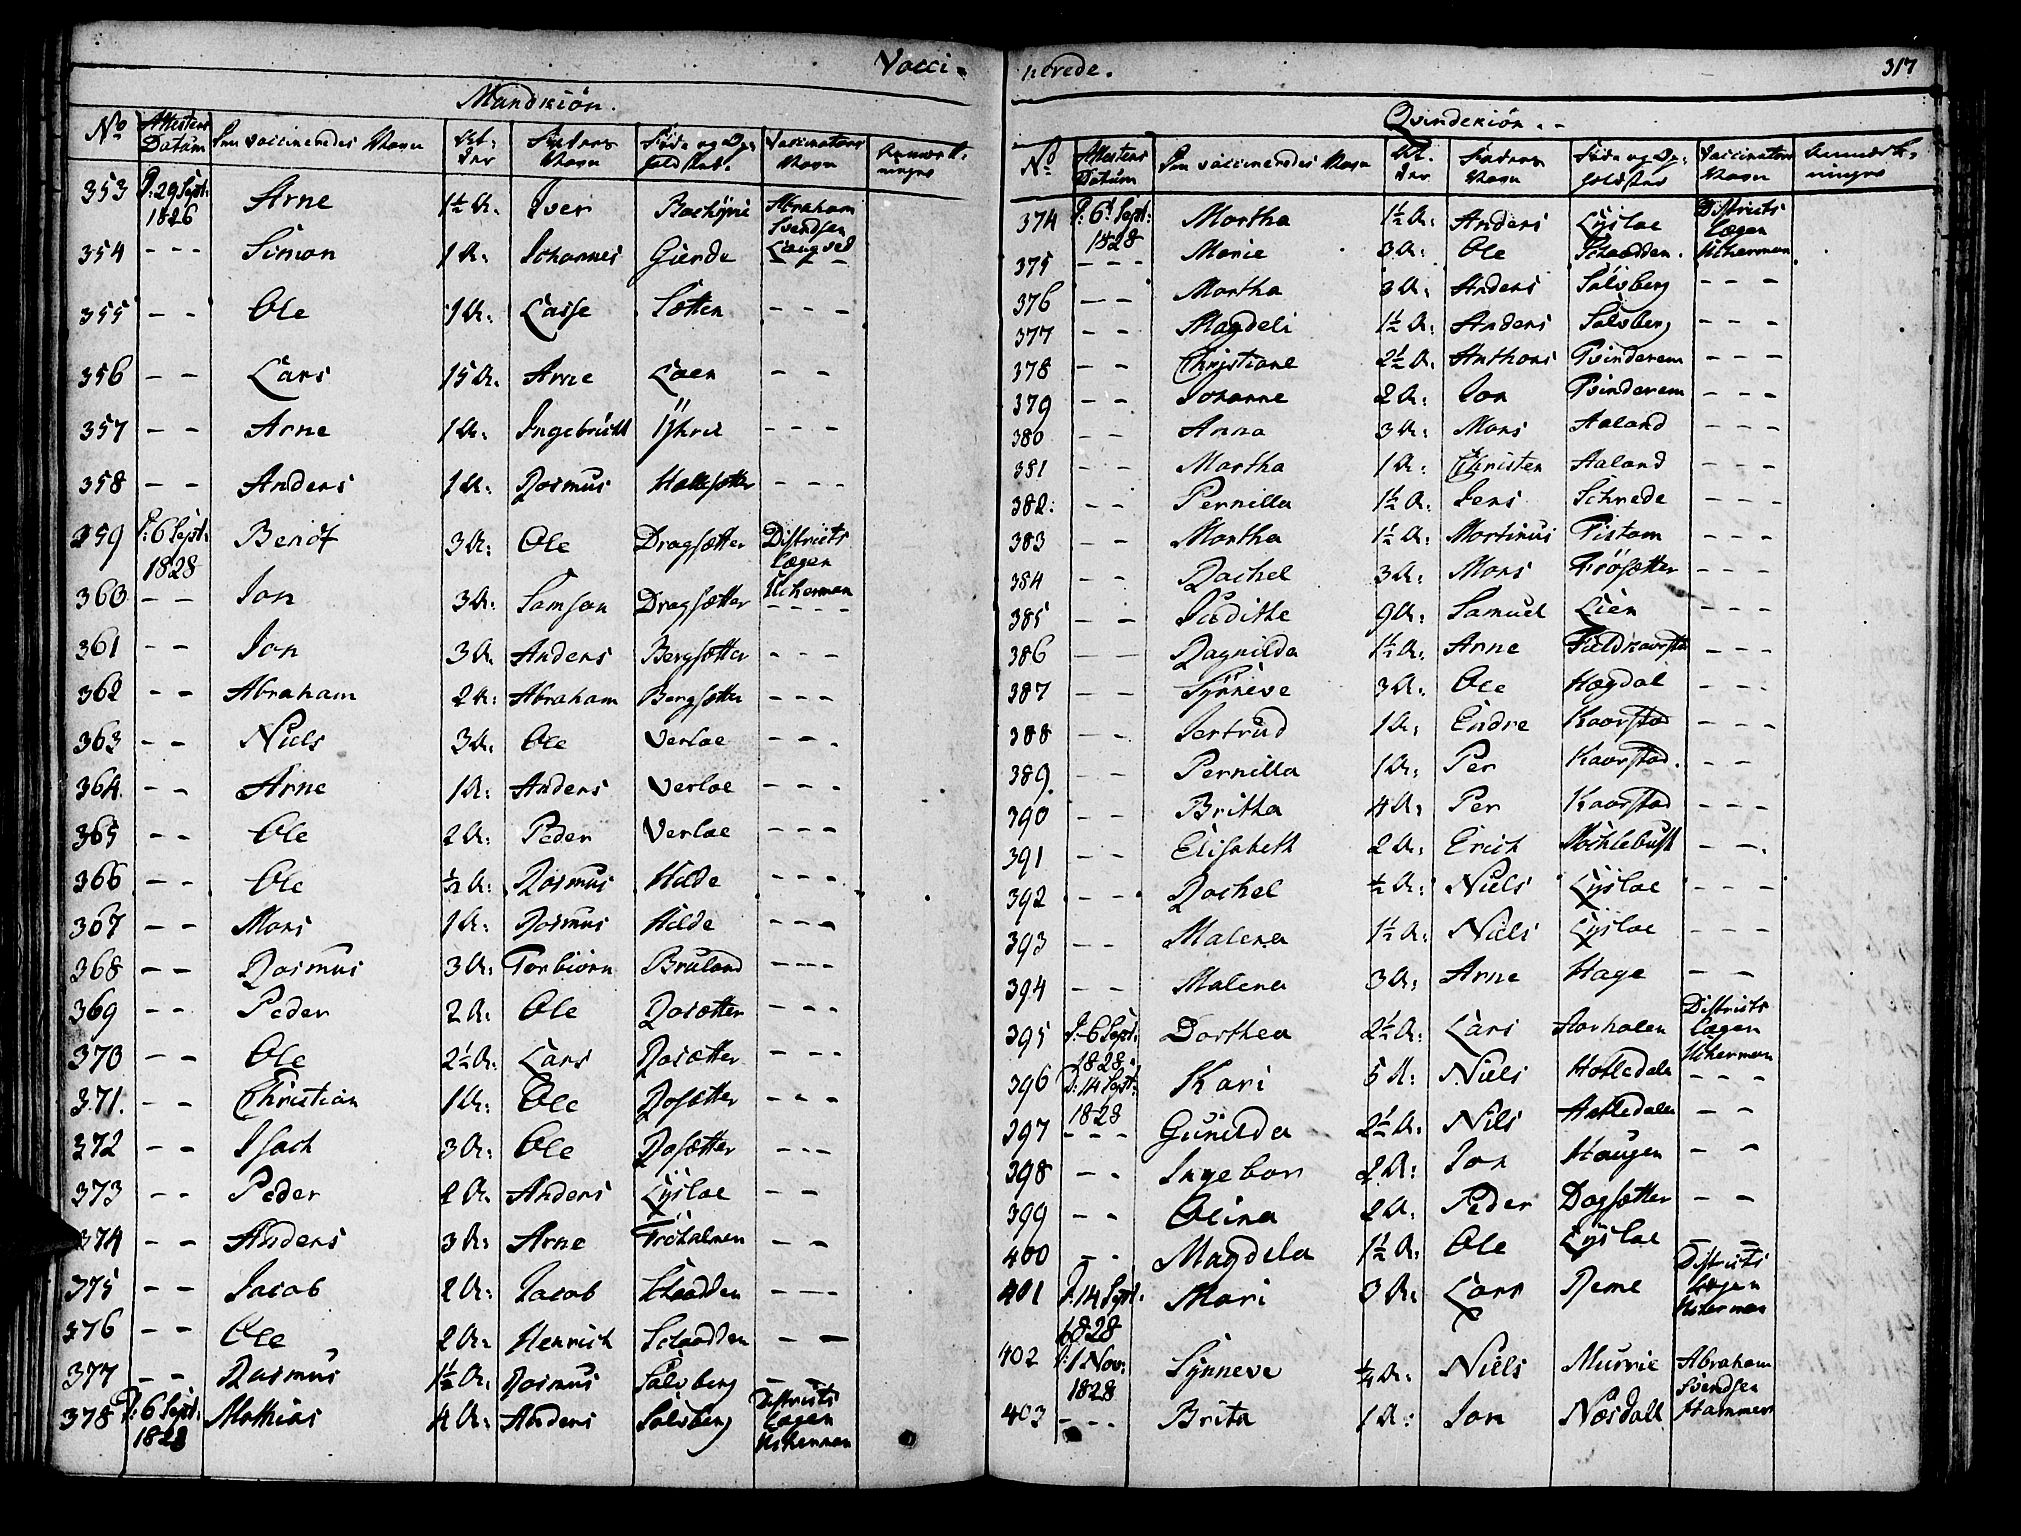 Vacci-
Mandkiön.
No Attestens Datum Den vaccineredes Navn Al- der Faders Navn Føde og Op- holdsted. Vaccinatorens Navn Anmærk- ninger
353 D: 29 Sept: 1826 Arne 1½ A: Iver Abraham Svendsen Langved
354 - - - Simon 1 A: Johannes Gierde - - -
355 - - Ole 1 A: Lasse Sætten - - -
356 - - Lars 15 A: Arne Loen - -
357 - - Arne 1 A: Ingebricht Ÿhrie - - -
358 - - Anders 1 A: Rasmus Hallsætter - - -
359 D: 6 Sept: 1828 Bendt 3 A: Ole Dragsætter Districts Lægen Ucherman
360 - - Jon 3 A: Samson Dragsætter - - - -
361 - - Jon 3 A: Anders Bergsætter - - -
362 - - Abraham 2 A: Abraham Bergsætter - - -
363 - - Niels 3 A: Ole Verloe - - -
364 - - Arne 1 A: Anders Verloe - - -
365 - - Ole 2 A: Peder Verloe - - -
366 - - Ole ½ A: Rasmus Hilde - - -
367 - - Mons 1 A: Rasmus Hilde - - -
368 - - Rasmus 3 A: Torbiörn Bruland - - -
369 - - Peder 2 A: Ole Rosætter - - -
370 - - Ole 2½ A: Lars Rosætter - - -
371. - - Christian 1 A: Ole Rosætter - - -
372 - - Isach 3 A: Ole Rosætter - - -
373 - - Peder 2 A: Anders Lysloe - -
374 - - Anders 3 A: Arne Fröholmen - -
375 - - Jacob 2 A: Jacob Schadden - - -
376 - - Ole 2 A: Henrich Schadden - -
377 - - Rasmus 1½ A: Rasmus Solvberg - -
378 D: 6 Sept: 1828 Mathias 4 A: Anders Solvberg Districts Lægen Ucherman
nerede. 317
Qvindekiön. -
No Attestens Datum Den vaccineredes Navn Al- der Faders Navn Føde og Op- holdsted Vaccinatorens Navn Anmærk- ninger
374 D: 6t Sept: 1828 Martha 1½ A: Anders Lysloe Districts Lægen Ucherman
375 - - - Marie 3 A: Ole Schadden.
376 - - Martha 3 A: Anders Solvberg - - -
377 - - Magdeli 1½ A: Anders Solvberg - - -
378 - - Christiane 2½ A: Anthoni Tvinderem - - -
379 - - Johanne 2 A: Jon Tvinderem - - -
380 - - Anna 3 A: Mons Aaland - - -
381 - - Martha 1 A: Christen Aaland - - -
382: - - Pernilla 1½ A: Jens Schrede - - -
383 - - Martha 1½ A: Martinus Tistam - - -
384 - - Rachel 3 A: Mons Fröisætter - - -
385 - - Judithe 9 A: Samuel Lien - - -
386 - - Ragnilda 1½ A: Arne - - -
387 - - Synneve 3 A: Ole Hægdal - - -
388 - - Jertrud 1 A: Endre Kaarstad - - -
389 - - Pernilla 1 A: Per Kaarstad.
390 - - Britha 4 A: Per Kaarstad - - -
391 - - Elisabeth 2 A: Erich Möchlebust - - -
392 - - - Rachel ½ A: Niels Lysloe - - -
393 - - Malena 1½ A: Niels Lysloe - - -
394 - - Malena 3 A: Arne Hage - -
395 D: 6 Sept: 1828. Dorthea 2½ A: Lars Aarholen Districts Lægen Ucherman
396 D: 14 Sept: 1828 Kari 5 A: Niels Holledalen - - -
397 - - - Gunilda 2½ A: Nils Holledalen - -
398 - - Ingebor 2 A: Jon Haugen - -
399 - - Olina 2 A: Peder Dagsætter - -
400 - - Magdela 1½ A: Ole Lysloe - -
401 D: 14 Sept. 1828 Mari 3 A: Lars Districts Lægen Ucherman
402 D: 1 Nov: 1828 Synneve ¼ A: Niels Murrie Abraham Svendsen Hammer
403 - - - Brita 1 A: Jon Næsdall